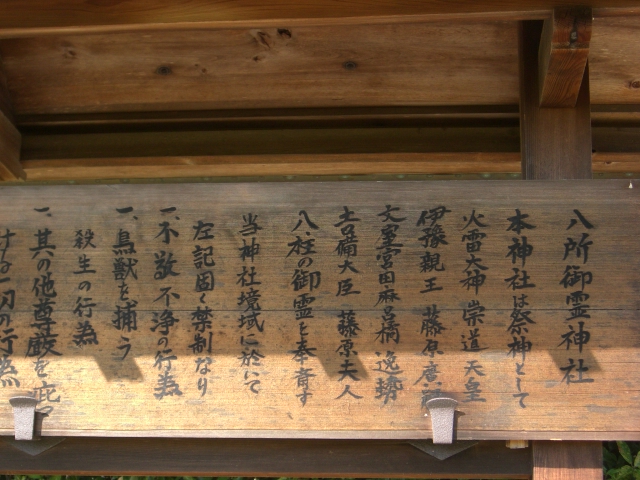 八所御霊神社
本神社は祭神として
火雷大神 崇道天皇
伊豫親王 藤原廣嗣
文屋宮田麻呂 橘逸勢
吉備大臣 藤原夫人
八柱の御霊を奉斎す
当神社境域に於いて
左記固く禁制なり
一、不敬不浄の行為
一、鳥獣を捕う
殺生の行為
一、其の他尊厳を
ける一切の行為